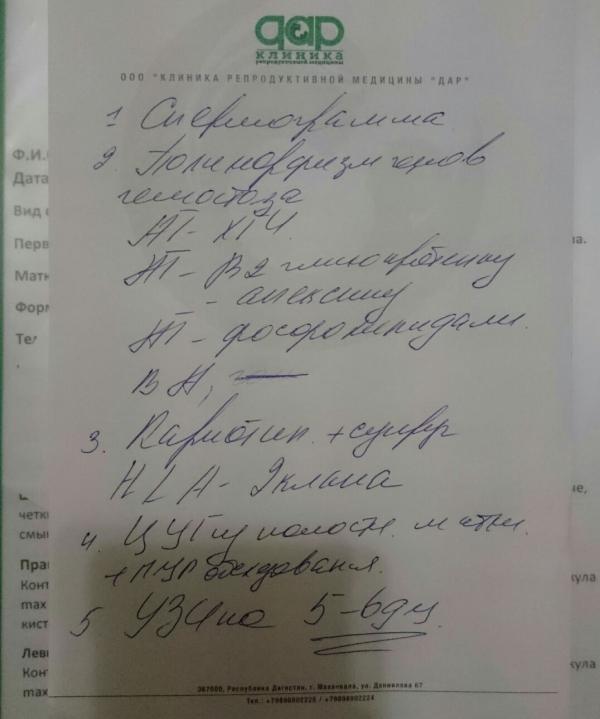 дар
клиника
репродуктивной медицины
ООО "КЛИНИКА РЕПРОДУКТИВНОЙ МЕДИЦИНЫ "ДАР"
1 Спермограмма
2. Полиморфизм генов
гемостаза
АТ - ХГЧ
АТ - В2 гликопротеину
- анексину
АТ - фосфолипидами.
ВА,
3. Кариотип + супруг
HLA - 2 класса
4. полости матки
+ ПЦР
5 УЗИ на 5-6 дц
Ф.И.
Дата
Вид
Перв
Матк
Форм
Тел
четк
смы
Пра
Конт
max
кист
Леви
Конт
max
кула
кула
367000, Республика Дагестан, г. Махачкала, ул. Даниялова 67
Тел.: +79898902226 / +79898902224